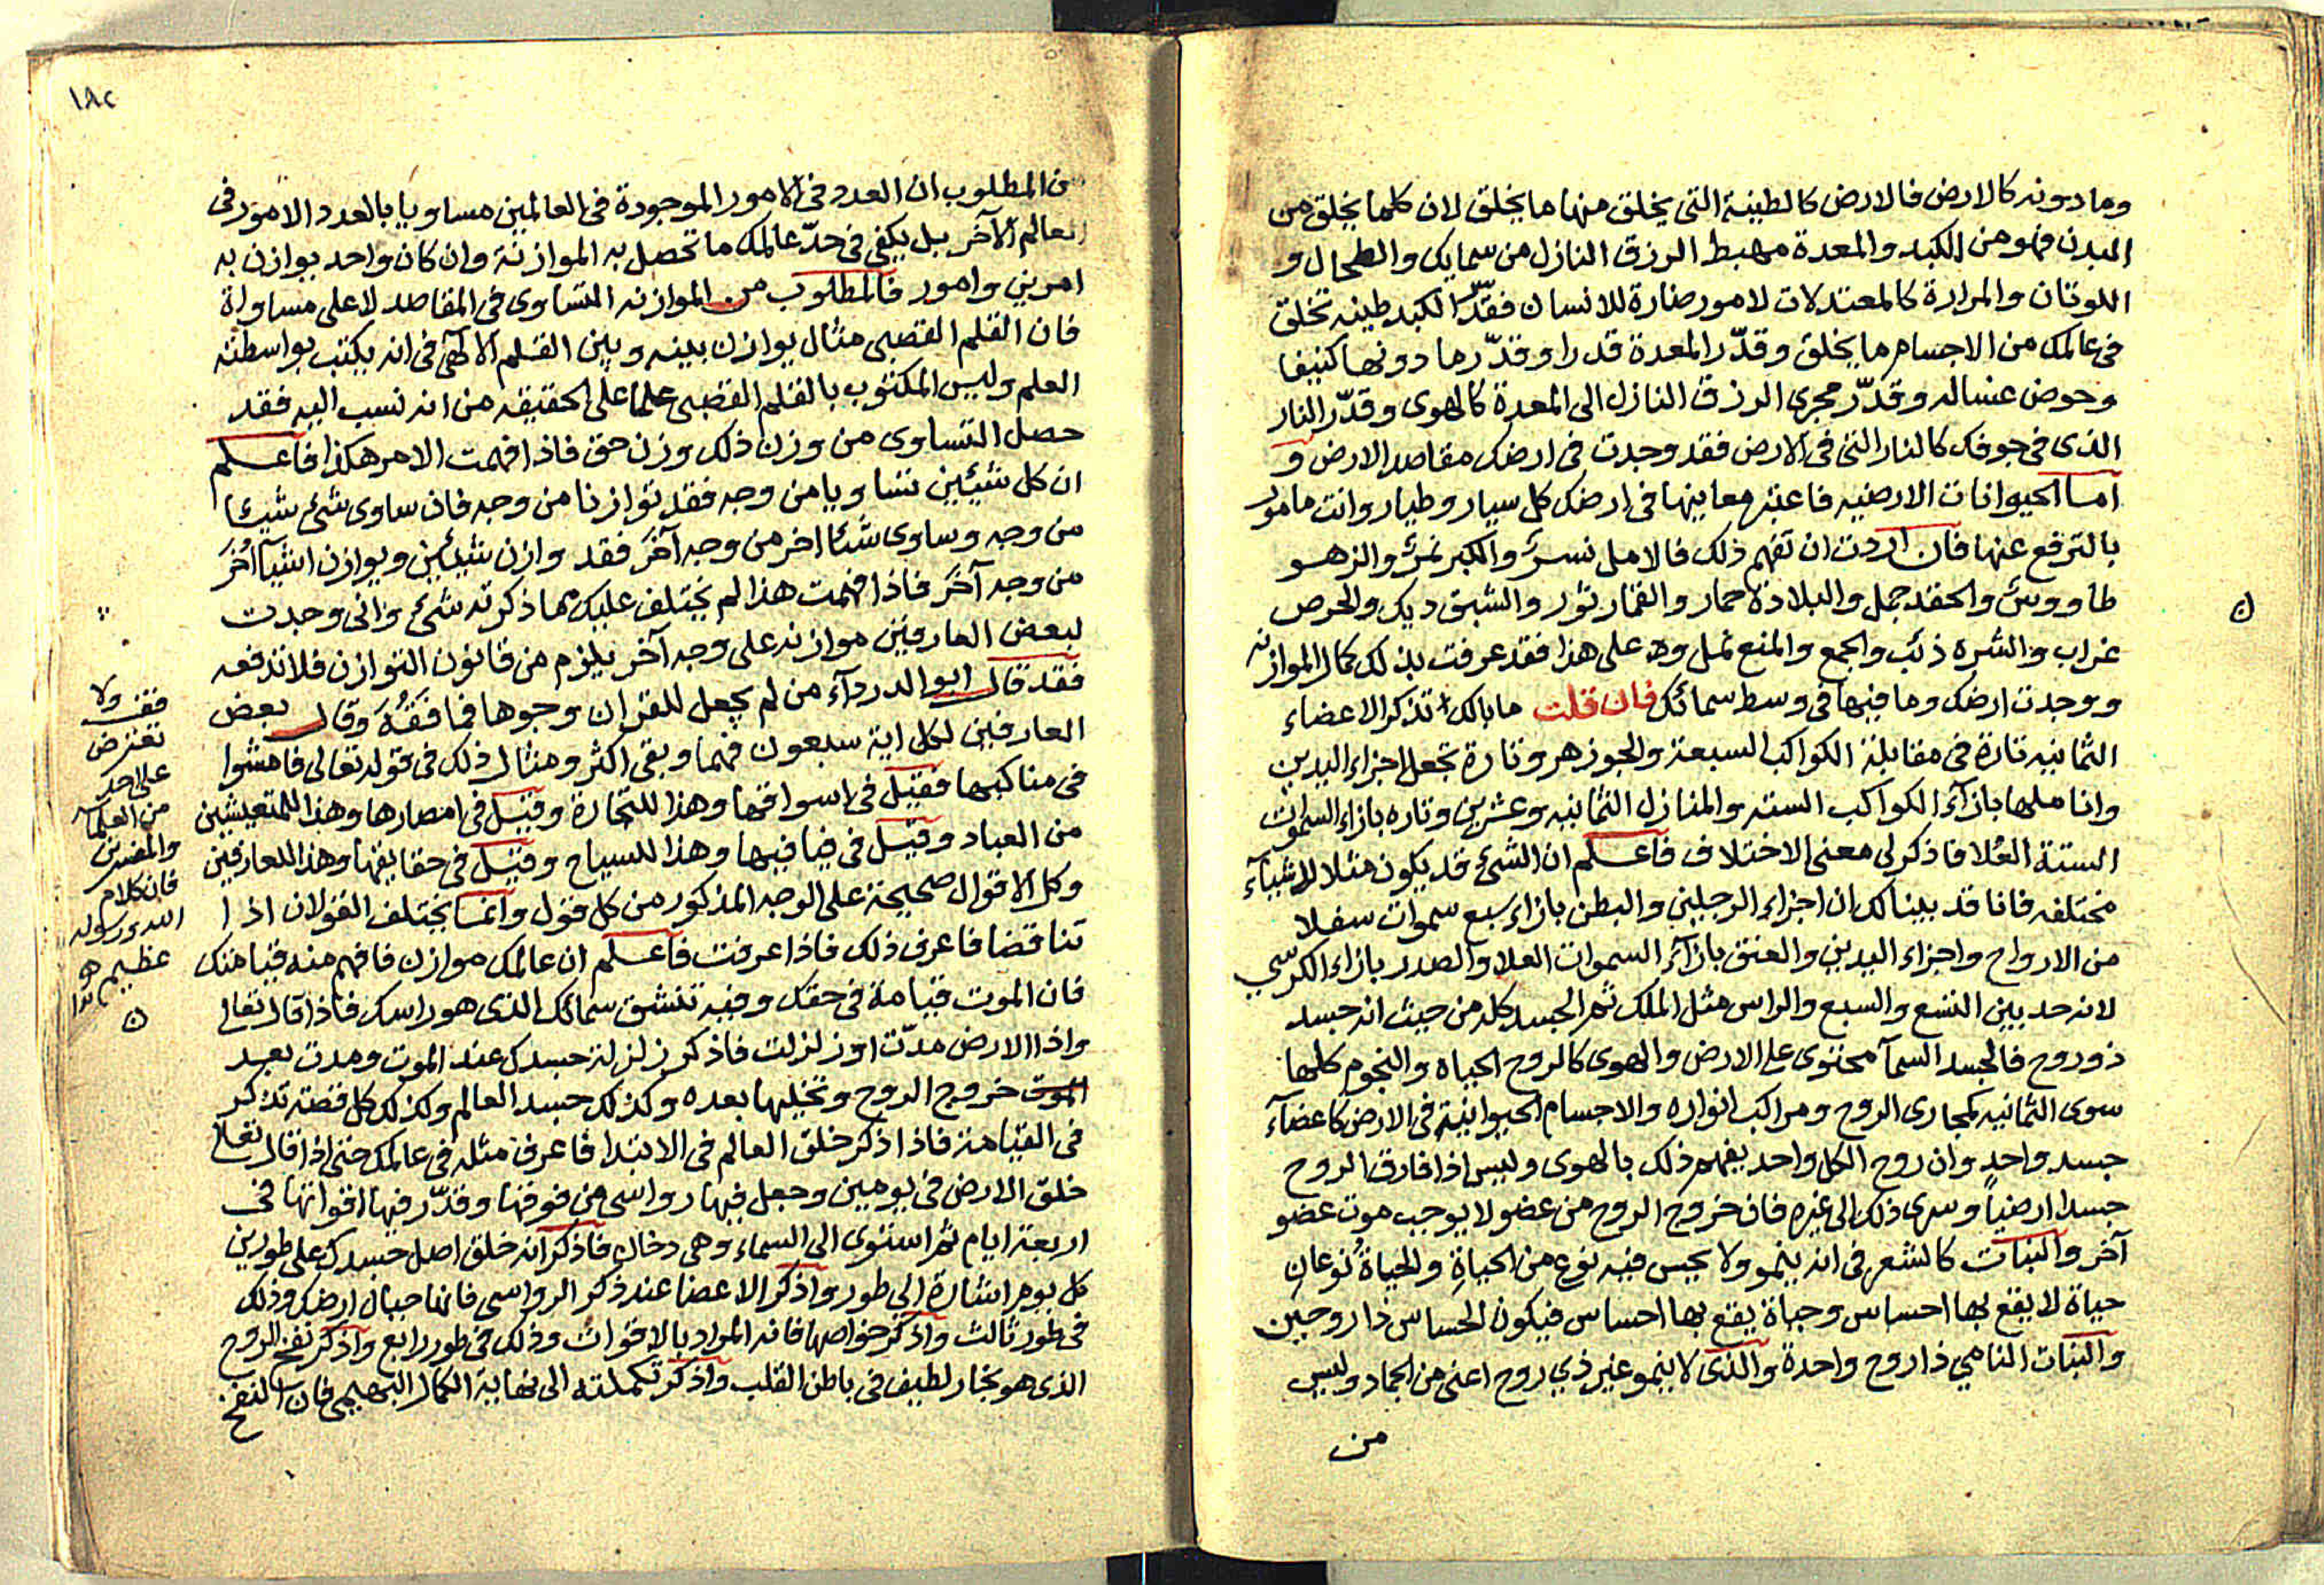 وما دونه كالارض فالارض كالطينة التى يخلق منها ما يخلق لان كلما يخلق من
البدن فهو من الكبد والمعدة مهبط الرزق النازل من سمايك والطحال و
اللوتان والمرارة كالمعتدلات لامور ضارة للانسان فقدّر الكبد طينه تخلق
فى عالمك من الاجسام ما يخلق وقدّر المعدة قدرا وقدّر ما دونها كنيفا
وحوض غساله وقدّر مجرى الرزق النازل الى المعدة كالهوى وقدّر النار
الذى فى جوفك كالنار التى فى الارض فقد وجدت فى ارضك مقاصد الارض و
اما الحيوانات الارضيه فاعتبر معاينها فى ارضك كل سيار وطيار وانت مامور
بالترفع عنها فان اردت ان تفهم ذلك فالامل نسرٌ والكبر نمرٌ والزهو
طاووسٌ والحقد جمل والبلادة حمار والفخار ثور والشبق ديك والحرص
غراب والشره ذئب والجمع والمنع نمل وهـ على هذا فقد عرفت بذلك كمال الموازنه
ووجدت ارضك وما فيها فى وسط سمائك فان قلت ما بالك تذكر الاعضاء
الثمانيه تارة فى مقابلة الكواكب السبعة والجوزهر وتارة تجعل اجزاء اليدين
واناملها بازآء الكواكب الستة والمنازل الثمانيه وعشرين وتاره بازاء السموات
الستة العُلا فاذكر لى معنى الاختلاف فاعلم ان الشئ قد يكون مثلا للاشيآء
مختلفه فانا قد بينا لك ان اجزاء الرجلين والبطن بازاء سبع سموات سفلا
من الارواح واجزاء اليدين والعنق بازآء السموات العلا والصدر بازاء الكرسي
لانه حد بين التسع والسبع والراس مثل الملك ثم الجسد كله من حيث انه جسد
ذو روح فالجسد السمآ محتوى على الارض والهوى كالروح الحياه والنجوم كلها
سوى الثمانيه كمجارى الروح ومراكب انواره والاجسام الحيوانية فى الارض كاعضآء
جسد واحدٍ وان روح الكل واحد يفهم ذلك بالهوى وليس اذا فارق الروح
جسدا ارضياً وسرى ذلك الى غيره فان خروج الروح من عضو لا يوجب موت عضو
آخر والنبات كالشعر فى انه ينمو ولا يحس فيه نوع من الحياةِ والحياةُ نوعانِ
حياة لا يقع بها احساس وحياة يقع بها احساس فيكون الحساس ذا روحين
والنبات النامي ذا روح واحدة والذى لا ينمو غير ذي روح اعنى من الجماد وليس
من
ن
١٨٢
من المطلوب ان العدد فى الامور الموجودة فى العالمين مساويا بالعدد الامور فى
العالم الآخر بل يكفى فى حدّ عالمك ما تحصل به الموازنة وان كان واحد يوازن به
امرين وامور فالمطلوب من الموازنه التساوى فى المقاصد لا على مساواة
فان القلم القصبى مثال يوازن بينه وبين القلم الآلهى فى انه يكتب بواسطته
العلم وليس المكتوب بالقلم القصبى علما على الحقيقه من انه نسب اليه فقد
حصل التساوى من وزن ذلك وزن حق فاذا فهمت الامر هكذا فاعلم
ان كل شيئين تساويا من وجه فقد توازنا من وجه فان ساوى شئ شيئا
من وجه وساوى شئا اخر من وجه آخر فقد وازن شيئين ويوازن اشيآ اخر
من وجه آخر فاذا فهمت هذا لم يختلف عليك مما ذكرته شئ وانى وجدت
لبعض العارفين موازنه على وجه آخر يلزم من قانون التوازن فلا تدفعه
فقد قال ابو الدردآء من لم يجعل للقران وجوها فما فَقُهَ وقال بعض
العارفين لكل اية سبعون فهما وبقى اكثر ومثال ذلك فى قوله تعالى فامشوا
فى مناكبها فقيل فى اسواقها وهذا للتجارة وقيل فى امصارها وهذا للمتعيشين
من العباد وقيل فى فيافيها وهذا للسياح وقيل فى حقايقها وهذا للعارفين
وكل الاقوال صحيحة على الوجه المذكور من كل قول وانما يختلف القولان اذا
تناقضا فاعرف ذلك فاذا عرفت فاعلم ان عالمك موازن فافهم منه قيامتك
فان الموت قيامة فى حقك وفيه تنشق سمائك الذى هو راسك فاذا قال تعالى
واذا الارض مدّت او زلزلت فاذكر زلزلة جسدك عند الموت ومدت بعيد
الموت خروج الروح وتخليها بعده وكذلك جسد العالم وكذلك كل قصة تذكر
فى القيامة فاذا ذكر خلق العالم فى الابتدا فاعرف مثله فى عالمك حتى اذا قال تعالى
خلق الارض فى يومين وجعل فيها رواسى من فوقها وقدّر فيها اقواتها فى
اربعة ايام ثم استوى الى السماء وهى دخان فاذكر انه خلق اصل جسدك على طورين
كل يوم اشارة الى طور واذكر الاعضا عند ذكر الرواسى فانها جبال ارضك وذلك
فى طور ثالث واذكر خواصها فانه المراد بالاقوات وذلك فى طور رابع واذكر نفخ الروح
الذى هو بخار لطيف فى باطن القلب واذكر تكملته الى نهاية الكمال البهيمى فان النفخ
فقف ولا
تعترض
على احد
من العلمآء
والمفسرين
فان كلام
الله ورسوله
عظيم
ن